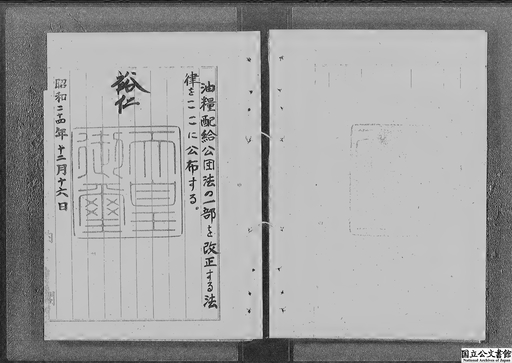 油糧配給公団法の一部を改正する法
律をここに公布する。
裕仁
天皇
御璽
昭和二十四年十二月十六日
国立公文書館
National Archives of Japan